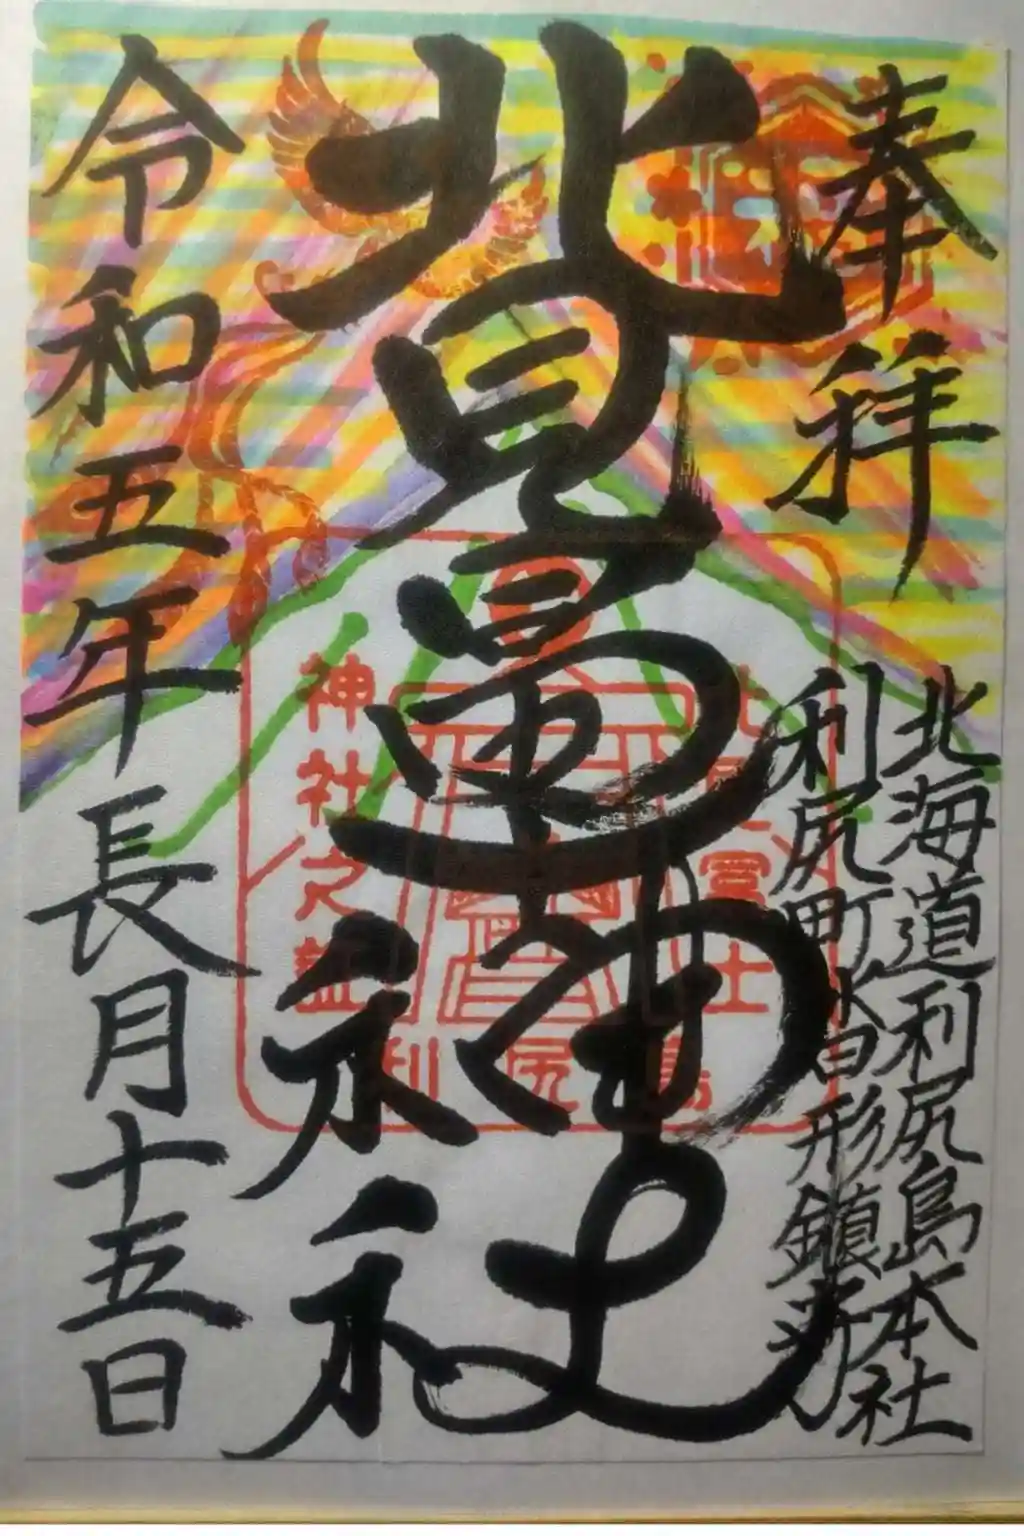 奉拝
北海道利尻島本社
利尻町沓形鎮座
北見冨士神社
令和五年長月十五日
北見冨士
神社之
利尻島